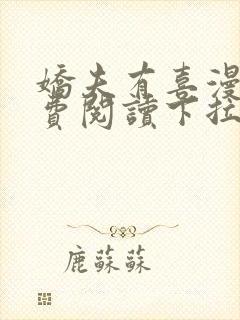 嬌夫有喜漫
費閱讀下拉
鹿蘇蘇